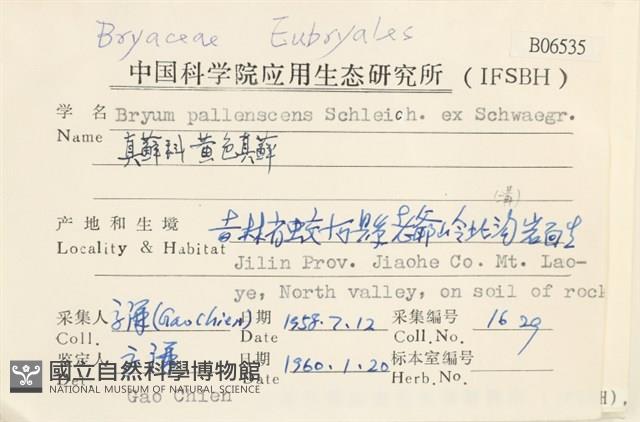 Bryaceae Eubryales
B06535
中国科学院应用生态研究所 (IFSBH)
学名 Bryum pallenscens Schleich. ex Schwaegr.
Name 真蘚科 黄色真蘚
(溝)
产地和生境 吉林省蛟河縣老爺岭北沟岩面生
Locality & Habitat Jilin Prov. Jiaohe Co. Mt. Lao-
ye, North valley, on soil of rock
采集人 (Gao Chien) 日期 1958.7.12 采集编号 1629
Coll. Date Coll.No.
鉴定人 日期 1960.1.20 标本室编号
Det Date Herb.No.
Gao Chien
國立自然科學博物館
NATIONAL MUSEUM OF NATURAL SCIENCE